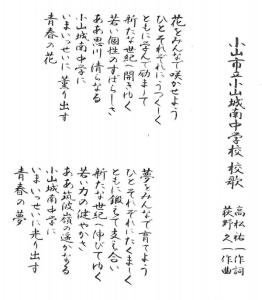 小山市立小山城南中学校 校歌
高松祐一作詞
荻野久一作曲
花をみんなで咲かせよう
ひとそれぞれにうつくしく
ともに学んで励まして
新たな世紀へ開きゆく
若い個性のすばらしさ
ああ思川清らなる
小山城南中学に
いまいっせいに薫り出す
青春の花
夢をみんなで育てよう
ひとそれぞれにたくましく
ともに鍛えて支え合い
新たな世紀へ伸びてゆく
若い力の健やかさ
ああ筑波嶺の遥かなる
小山城南中学に
いまいっせいに光り出す
青春の夢